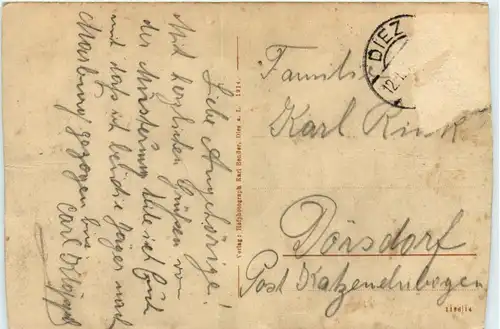 Liebe Angehörige!
Mit herzlichen Grüßen von
der Musterung teile ich Euch
mit daß ich bei die Jäger nach
Marburg gezogen bin.
Carl
Verlag: Hofphotograph Karl Heudler, Diez a. L. 1914.
DIEZ
12.
Familie
Karl Rink
Dörsdorf
Post Katzenelnbogen